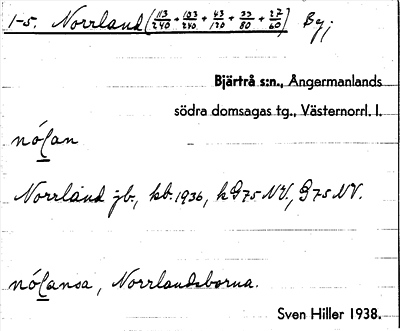 1-5. Norrland (113/240 + 103/240 + 43/120 + 33/80 + 27/60) By;
Bjärtrå s:n., Ångermanlands
södra domsagas tg., Västernorrl. l.
nóɭan
Norrland jb, kb. 1936, k G75 NV., G75 NV.
nóɭansa, Norrlandsborna.
Sven Hiller 1938.